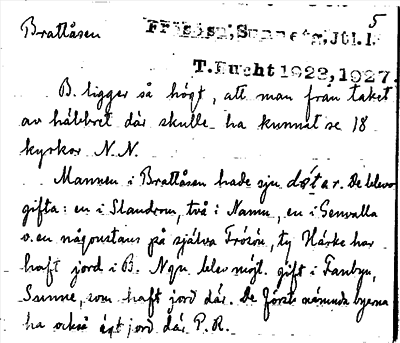 5
Brattåsen Frösösn; Sunne tg; Jtl. l.
T. Bucht 1922, 1927.
B. ligger så högt, att man från taket
av härbret där skulle ha kunnat se 18
kyrkor N.N.
Mannen i Brattåsen hade sju dötar. De blevo
gifta: en i Slandrom, två i Namn, en i Genvalla
o. en någonstans på själva Frösön, ty Härke har
haft jord i B. Ngn blev möjl. gift i Fanbyn,
Sunne, som haft jord där. De först nämnda byarna
ha också ägt jord där P.R.